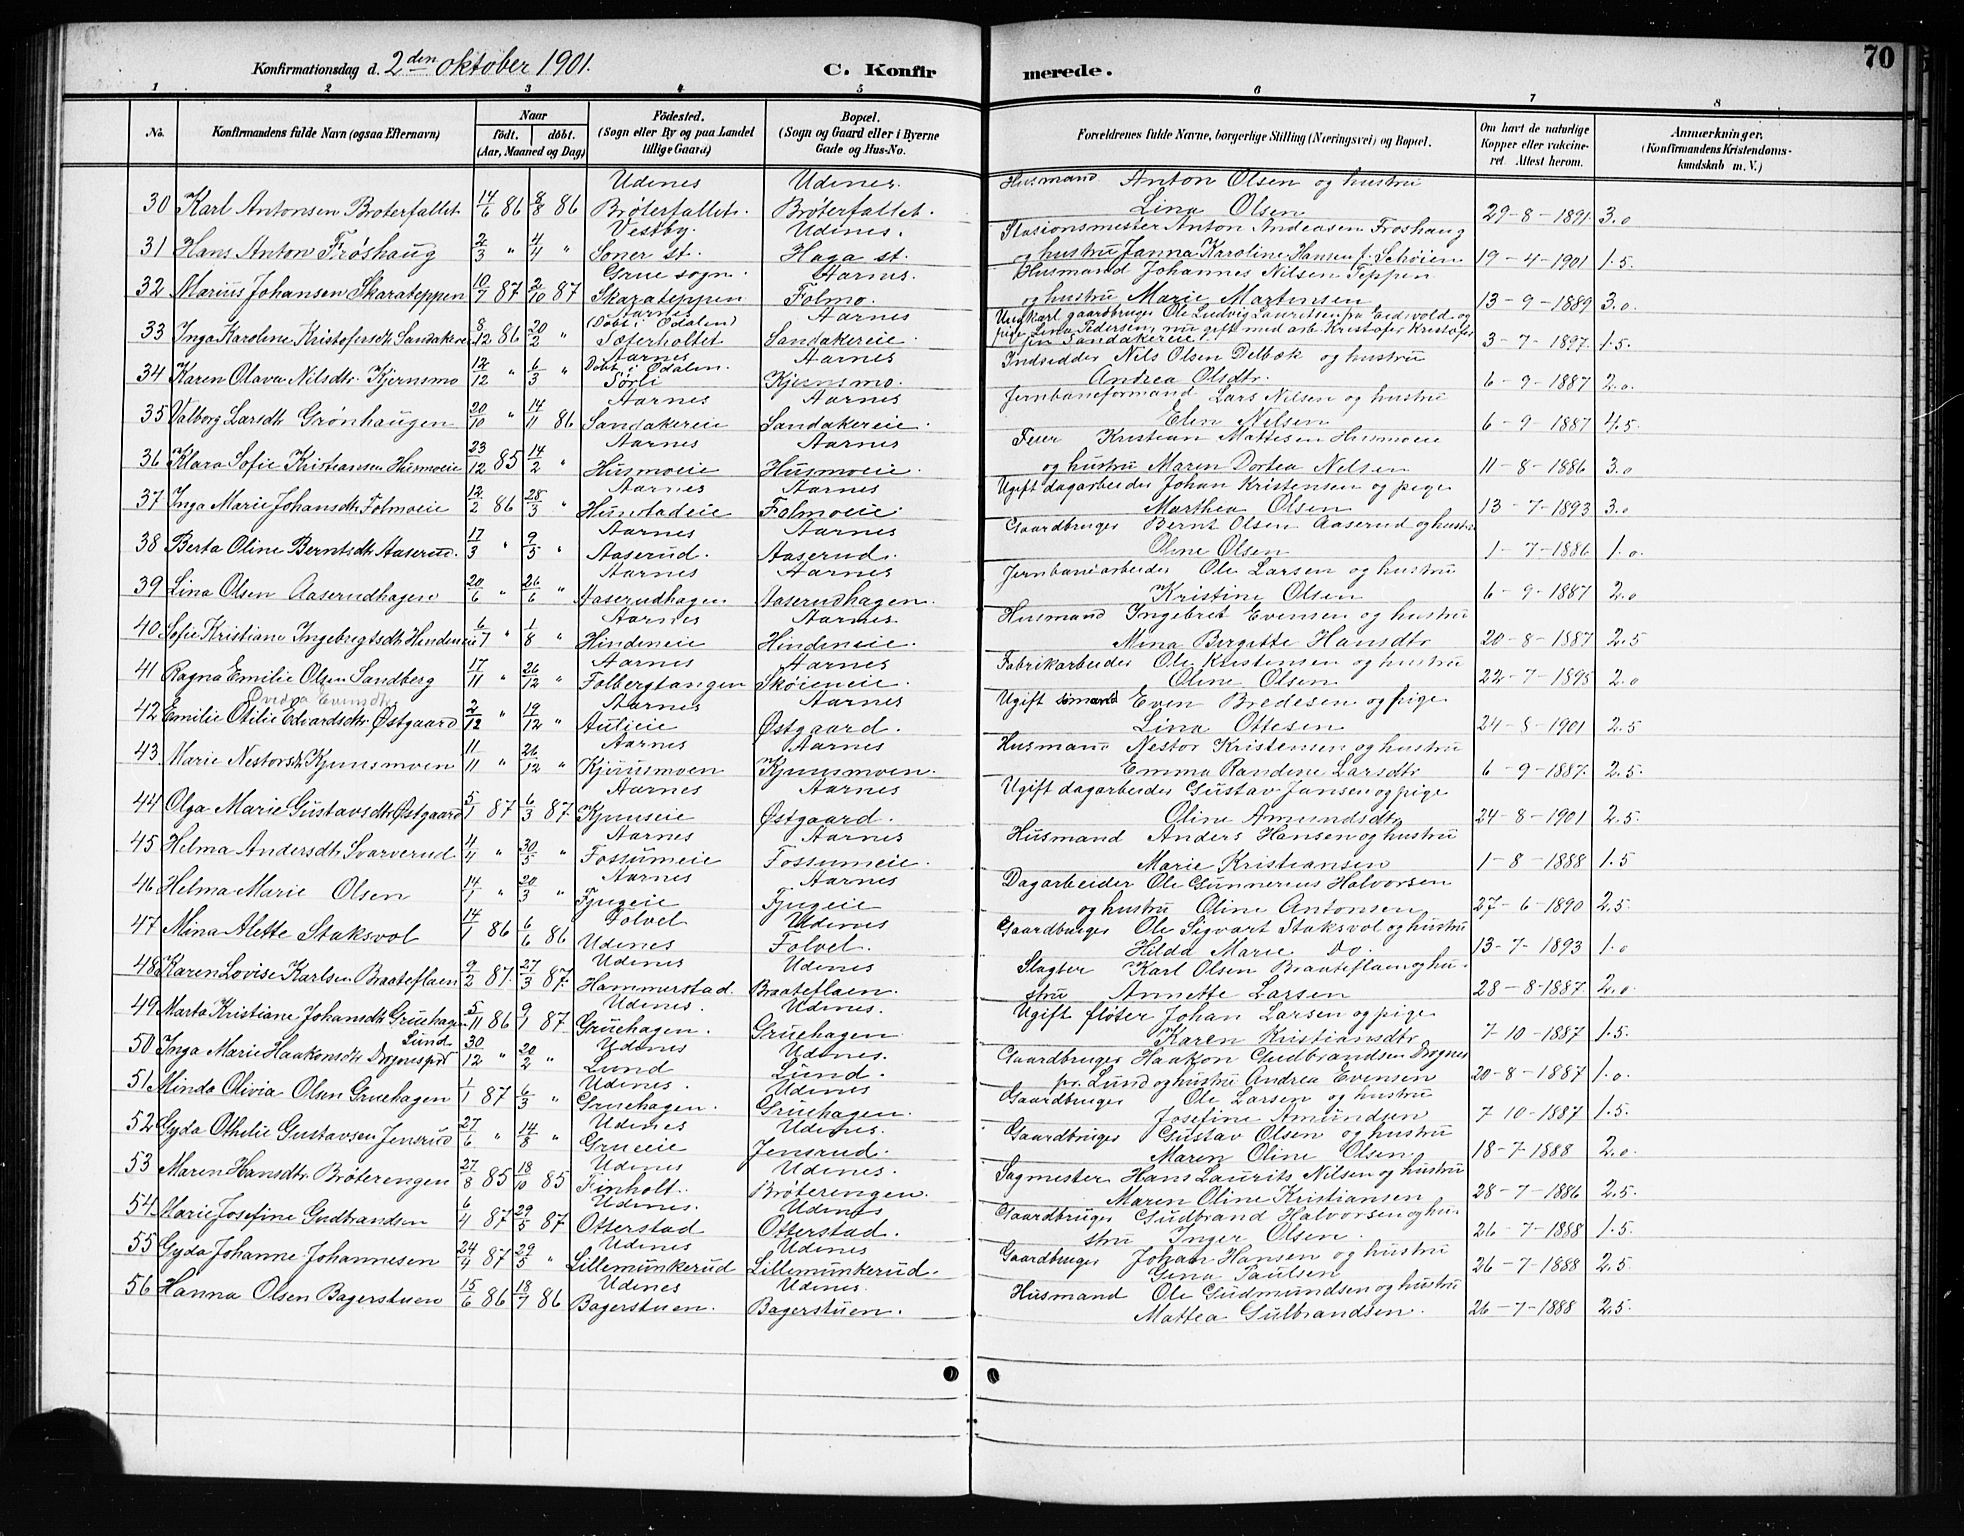 Konfirmationsdag d. 2den oktober 1901. C. Konfirmerede. 70
1 2 3 4 5 6 7 8
No. Konfirmandens fulde Navn (ogsaa Efternavn) Naar født. døbt. (Aar, Maaned og Dag) Fødested. (Sogn eller By og paa Landet tillige Gaard) Bopæl. (Sogn og Gaard eller i Byerne Gade og Hus-No. Forældrenes fulde Navne, borgerlige Stilling (Næringsvei) og Bopæl. Om havt de naturlige Kopper eller vakcineret. Attest herom. Anmærkninger, (Konfirmandens Kristendomskundskab m. V.)
Udenes Udenes. Husmand Anton Olsen og hustru
30 Karl Antonsen Brøterfallet 14/6 86 8/8 86 Brøterfallet. Brøterfallet. Lina Olsen 29-8-1891 3.0
Vestby. Udenes. Stasionsmester Anton Andeasen Froshaug
31 Hans Anton Frøshaug 2/3 " 4/4 " Soner st. Haga st. og hustru Janna Karoline Hansen f. Schøien 19-4-1901 1.5.
Grue sogn. Aarnes. Husmand Johannes Nilsen Teppen
32 Marius Johansen Skarateppen 10/7 87 2/10 87 Skarateppen Folmo. og hustru Marie Martensen 13-9-1889 3.0
Aarnes (Døbt i Odalen) Aarnes Ungkarl gaardbruger Ole Ludvig Lauritsen fra Eidsvold og
33 Inga Karoline Kristofersdt Sandakereie 8/12 86 20/2 " Sæterholtet Sandakereie. pige Lina Pedersen, nu gift med arb. Kristofer Kristofersen Sandakereie 3-7-1897. 1.5.
Aarnes Døbt i Odalen. Aarnes Indsidder Nils Olsen Delbæk og hustru
34 Karen Olava Nilsdtr. Kjernsmo 12/12 " 6/3 " Sørli Kjernsmo. Andrea Olsdtr. 6-9-1887 2.0.
Aarnes Aarnes Jernbaneformand Lars Nilsen og hustru
35 Valborg Larsdtr Grønhaugen 20/10 " 14/11 86 Sandakereie Sandakereie. Elen Nilsen 6-9-1887 4.5.
Aarnes Aarnes Feier Kristian Mattesen Husmoeie
36 Klara Sofie Kristiansen Husmoeie 23/12 85 14/2 " Husmoeie Husmoeie. og hustru Maren Dortea Nelsen 11-8-1886 3.0
Aarnes Aarnes Ugift dagarbeider Johan Kristensen og pige
37 Inga Marie Johansdtr Folmoeie 12/2 86 28/3 " Hunstadeie Folmoeie. Marthea Olsen 13-7-1893 3.0
Aarnes Aarnes Gaardbruger Bernt Olsen Aaserud og hustru
38 Berta Oline Berntsdtr Aaserud. 17/3 " 9/5 " Aaserud. Aaserud. Oline Olsen 1-7-1886 1.0.
Aarnes Aarnes Jernbanearbeider Ole Larsen og hustru
39 Lina Olsen Aaserudhagen 20/6 " 26/6 " Aaserudhagen Aaserudhagen. Kristine Olsen 6-9-1887 2.0
Aarnes Aarnes. Husmand Ingebret Evensen og hustru
40 Sofie Kristiane Ingebregtsdtr Hindeneie 6/7 " 1/8 " Hindeneie Hindeneie. Mina Bergitte Hansdtr 20-8-1887 2.5
Aarnes Aarnes Fabrikarbeider Ole Kristensen og hustru
41 Ragna Emilie Olsen Sandberg 17/11 " 26/12 " Folbergtangen Skøieneie. Oline Olsen 22-7-1895 2.0
Evensdtr Aarnes Aarnes Ugift sømand Even Bredesen og pige
42 Emilie Otilie Edvardsdtr Østgaard 2/12 " 19/12 " Aulieie Østgaard. Lina Ottesen 24-8-1901 2.5
Aarnes Aarnes Husmand Nestor Kristensen og hustru
43 Marie Nestorsdt Kjernsmoen 11/11 " 26/12 " Kjernsmoen Kjernsmoen. Emma Randine Larsdtr 6-9-1887. 2.5.
Aarnes Aarnes Ugift dagarbeider Gustav Jansen og pige
44 Olga Marie Gustavsdtr Østgaard 5/1 87 6/3 87. Kjernseie Østgaard. Oline Amundsdtr 24-8-1901 2.5.
Aarnes Aarnes Husmand Anders Hansen og hustru
45 Helma Andersdtr Svarverud 4/4 " 30/5 " Fossumeie Fossumeie. Marie Kristiansen 1-8-1888 1.5
Aarnes Aarnes Dagarbeider Ole Gunnereus Halvorsen
46 Helma Marie Olsen 14/1 " 20/3 " Fjugeie Fjugeie og hustru Oline Antonsen 27-6-1890 2.5.
Folvel Udenes Gaardbruger Ole Sigvart Staksvol og hustru
47 Mina Alette Staksvol 14/1 86 6/6 86 Udenes Folvel. Hilda Marie Do. 13-7-1893 1.0
Udenes Udenes Slagter Karl Olsen Braateflaen og hu-
48 Karen Lovise Karlsen Braateflaen 9/2 87. 27/3 87. Hammerstad. Braateflaen. stru Annette Larsen 28-8-1887. 2.0
Udenes. Udenes. Ugift fløter Johan Larsen og pige
49 Marta Kristiane Johansdtr Gruehagen 5/11 86 9/1 87. Gruehagen. Gruehagen Karen Kristiansdtr 7-10-1887 1.5.
Lund Udenes Udenes. Gaardbruger Haakon Gudbrandsen Drognes
50 Inga Marie Haakonsdtr 30/12 " 20/2 " Lund Lund. pr. Lund og hustru Andrea Evensen 20-8-1887 1.0.
Udenes. Udenes Gaardbruger Ole Larsen og hustru
51 Minda Olivia Olsen Gruehagen 1/1 87 6/3 " Gruehagen. Gruehagen. Josefine Amundsen 7 10-1887 1.5.
Udenes Udenes. Gaardbruger Gustav Olsen og hustru
52 Gyda Othilie Gustavsen Jensrud 27/6 " 14/8 " Grueeie Jensrud. Maren Oline Olsen. 18-7-1888 2.0
Udenes Udenes. Sagmester Hans Laurits Nilsen og hustru
53 Maren Hansdtr. Brøterengen 27/8 85 18/10 85 Finholt. Brøterengen. Maren Oline Kristiansen 28-7-1886 2.5.
Udenes. Udenes Gaardbruger Gudbrand Halvorsen og hu-
54 Marie Josefine Gudbrandsen 6/4 87 29/5 87 Otterstad Otterstad. stru Inger Olsen. 26-7-1888 1.5.
Udenes Udenes Gaardbruger Johan Hansen og hustru
55 Gyda Johanne Johannesen 24/4 87 29/5 " Lillemunkerud Lillemunkerud. Gina Paulsen 26-7-1888 2.5.
Udenes Udenes. Husmand Ole Gudmundsen og hustru
56 Hanna Olsen Bagerstuen 15/6 86 18/7 86 Bagerstuen. Bagerstuen. Mattea Gulbrandsen. 26-7-1888 2.5.